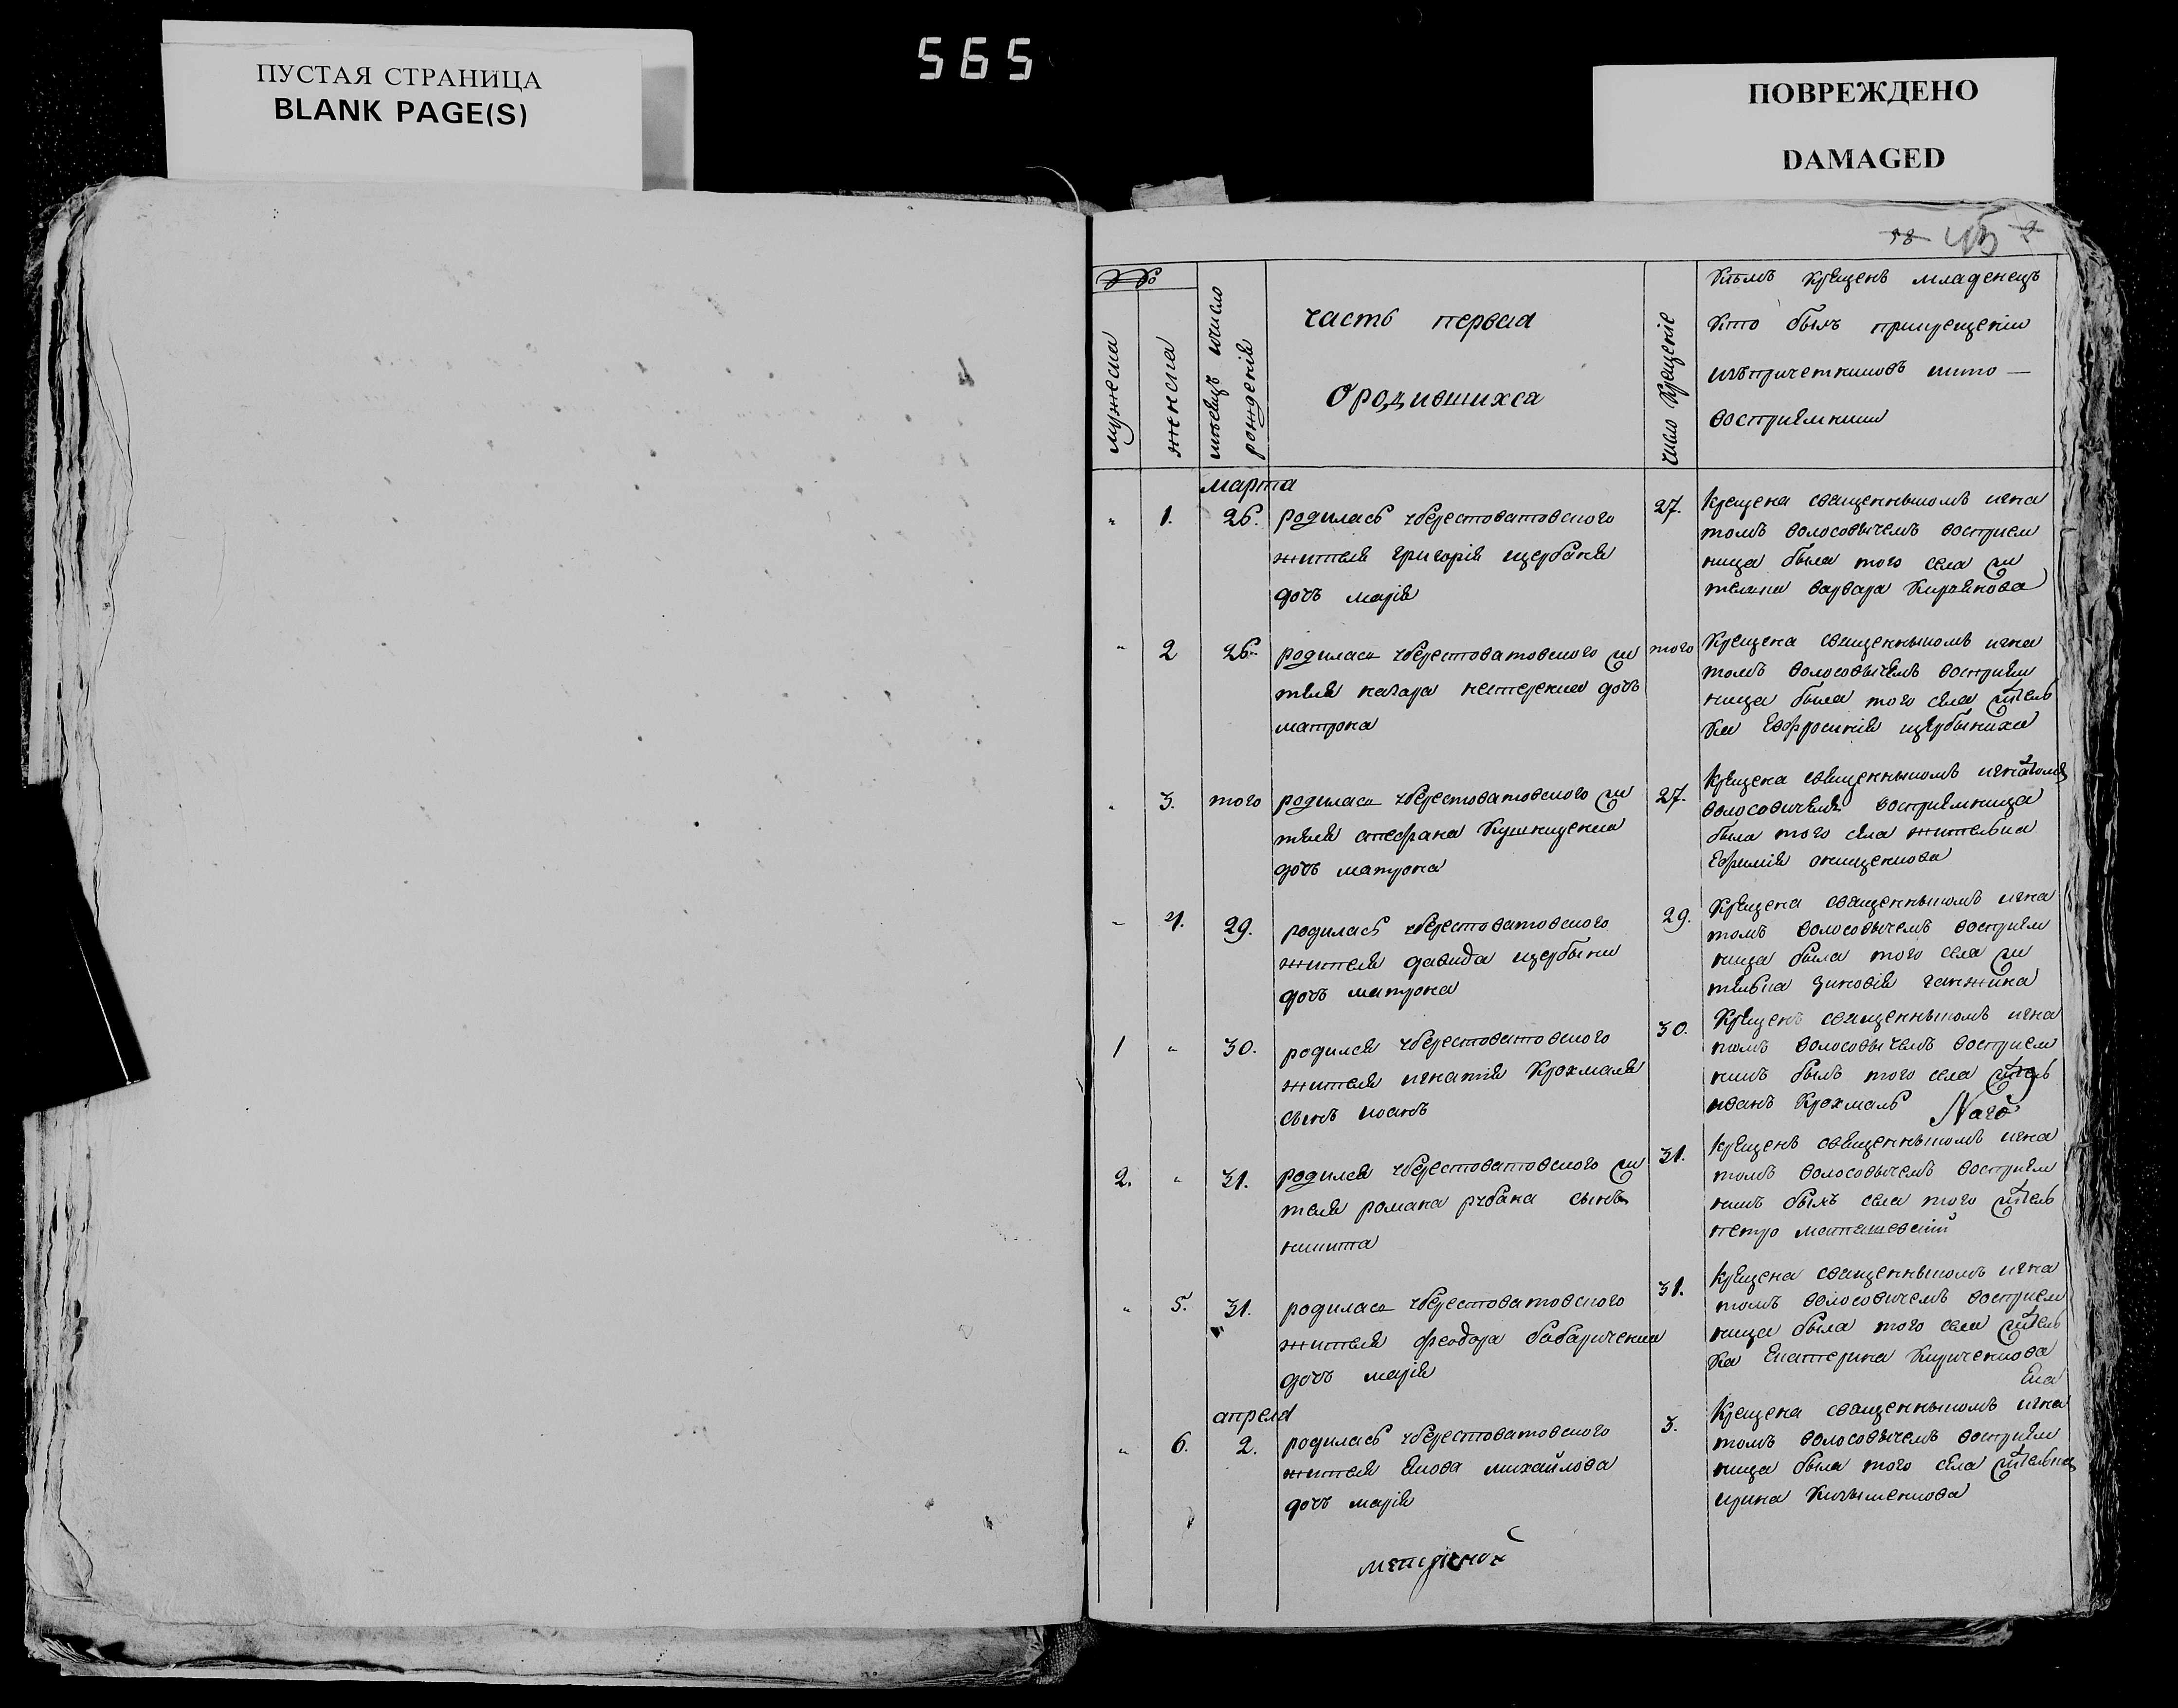 ПУСТАЯ СТРАНИЦА
BLANK PAGE(S)
565
ПОВРЕЖДЕНО
DAMAGED
58
№
мужеска
женска
мѣсецъ ичисло
рожденія
часть первая
Ородившихся
число Крещенiе
Кѣмъ Крещенъ младенецъ
Кто былъ прикрещеніи
изъпричетниковъ икто —
воспріемники
марта
1. 26. родилась уберестоватовского
жителя григорія щербаня
дочь марія
27. Крещена священникомъ игна
томъ волосовичемъ восприем
ница была того села жи
телька варвара
2 26. родилась уберестоватовского жи
теля назара нестеренка дочь
матрона
того Крещена священникомъ игна
томъ волосовичемъ восприем
ница была того села житель
ка Евфросинія щербиниха
3. того родилась уберестоватовского жи
теля стефана
дочь матрона
27. Крещена священникомъ игнатомъ
волосовичемъ восприемница
была того села жителька
Ефимія онищенкова
4. 29. родилась уберестоватовского
жителя давида щербини
дочь матрона
29. Крещена священникомъ игна
томъ волосовичемъ восприем
ница была того села жи
телька зиновія ганжина
1 30. родился уберестоватовского
жителя игнатія Крохмаля
сынъ иоанъ
30. Крещенъ священникомъ игна
томъ волосовичемъ восприем
никъ былъ того села житель
иванъ Крохмаль
2. 31. родился уберестоватовского жи
теля романа рубана сынъ
никита
31. Крещенъ священникомъ игна
томъ волосовичемъ восприем
никъ былъ села того житель
петро
5. 31. родилась уберестоватовского
жителя феодора бабариченка
дочь марія
31. Крещена священникомъ игна
томъ волосовичемъ восприем
ница была того села житель
ка Екатерина Кириченкова
апреля
6. 2. родилась уберестоватовского
жителя Якова михайлова
дочь марія
3. Крещена священникомъ игна
томъ волосовичемъ восприем
ница была того села жителька
ирина